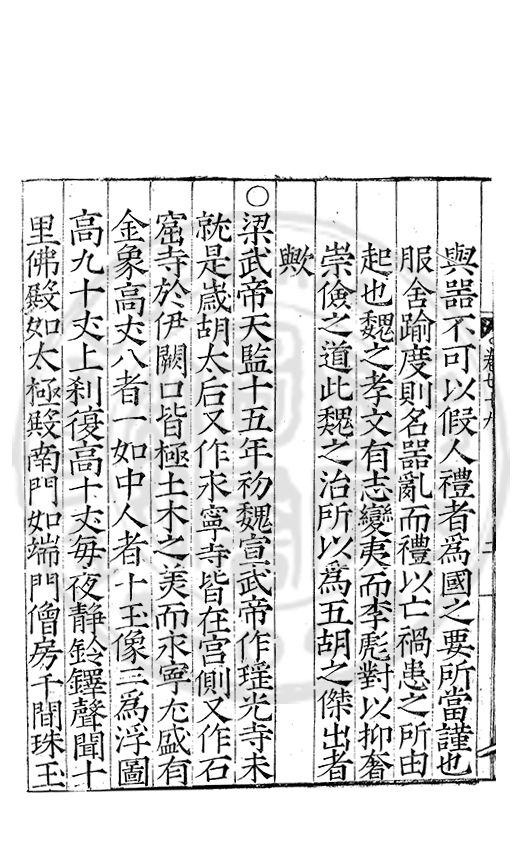 卷七十九
與噐不可以假人禮者爲國之要所當謹也
服舍踰度則名噐亂而禮以亡禍患之所由
起也魏之孝文有志變夷而李彪對以抑奢
崇儉之道此魏之治所以爲五胡之傑出者
歟
○梁武帝天監十五年初魏宣武帝作瑤光寺未
就是歲胡太后又作永寧寺皆在宫側又作石
窟寺於伊闕口皆極土木之美而永寧尤盛有
金象高丈八者一如中人者十玉像二爲浮圖
高九十丈上刹復高十丈每夜靜鈴鐸聲聞十
里佛殿如太極殿南門如端門僧房千間珠玉